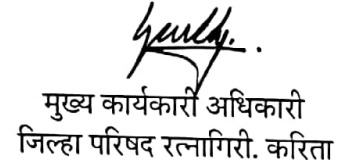 मुख्य कार्यकारी अधिकारी
जिल्हा परिषद रत्नागिरी. करिता